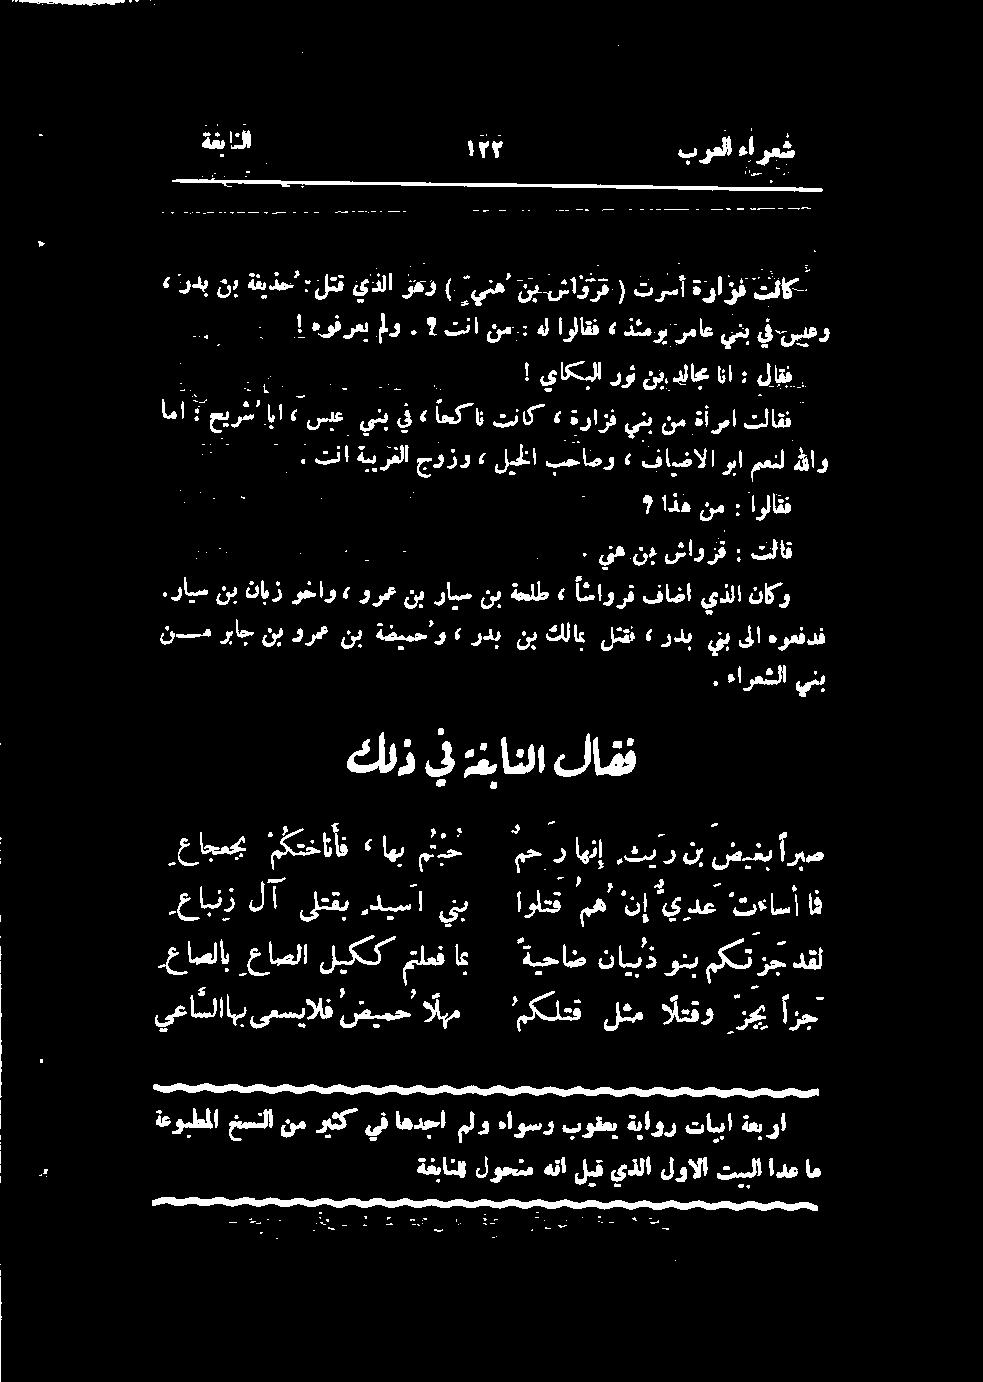 شعراء العرب ١٢٢ النابغة
كانت فزارة أسرت ( قرواش بن هُنيّ ) وهو الذي قتل : حُذيفة بن بدر ،
وعبس في بني عامر يومئذ ، فقالوا له : من انت ? . ولم يعرفوه !
فقال : انا مجالد بن ثور البكاي !
فقالت امرأة من بني فزارة ، كانت ناكحاً ، في بني عبس ، ابا شُريح ; اما
والله لنعم ابو الاضياف ، وصاحب الخيل ، وزوج الغريبة انت .
فقالوا : من هذا ?
قالت : قرواش بن هني .
وكان الذي اضاف قرواشاً ، طلحة بن سيار بن عمرو ، واخو زبان بن سيار .
فدفعوه الى بني بدر ، فقتل بمالك بن بدر ، وحُميضة بن عمرو بن جابر مـن
بني الشعراء .
فقال النابغة في ذلك
صبراً بغيض بن ريث ِ إنها رَحمٌ حُبْتُم بها ، فأناختكُمْ بجعجاع ِ
فما أساءتْ عَديٌّ إنْ هُمُ قَتلوا بني اسيد ِ بقتلى آل زِنباع ِ
لقد جَزَتكم بنو ذُبيان ضاحيةً بما فعلتم ككيل الصاع ِ بالصاع ِ
جَزاً بجَزّ ٍ وقتلاً مثل قتلكمُ مهلاً حُميضُ فلا يسعى بها السَّاعي
اربعة ابيات رواية يعقوب وسواه ولم اجدها في كثير من النسخ المطبوعة
ما عدا البيت الاول الذي قيل انه منحول للنابغة